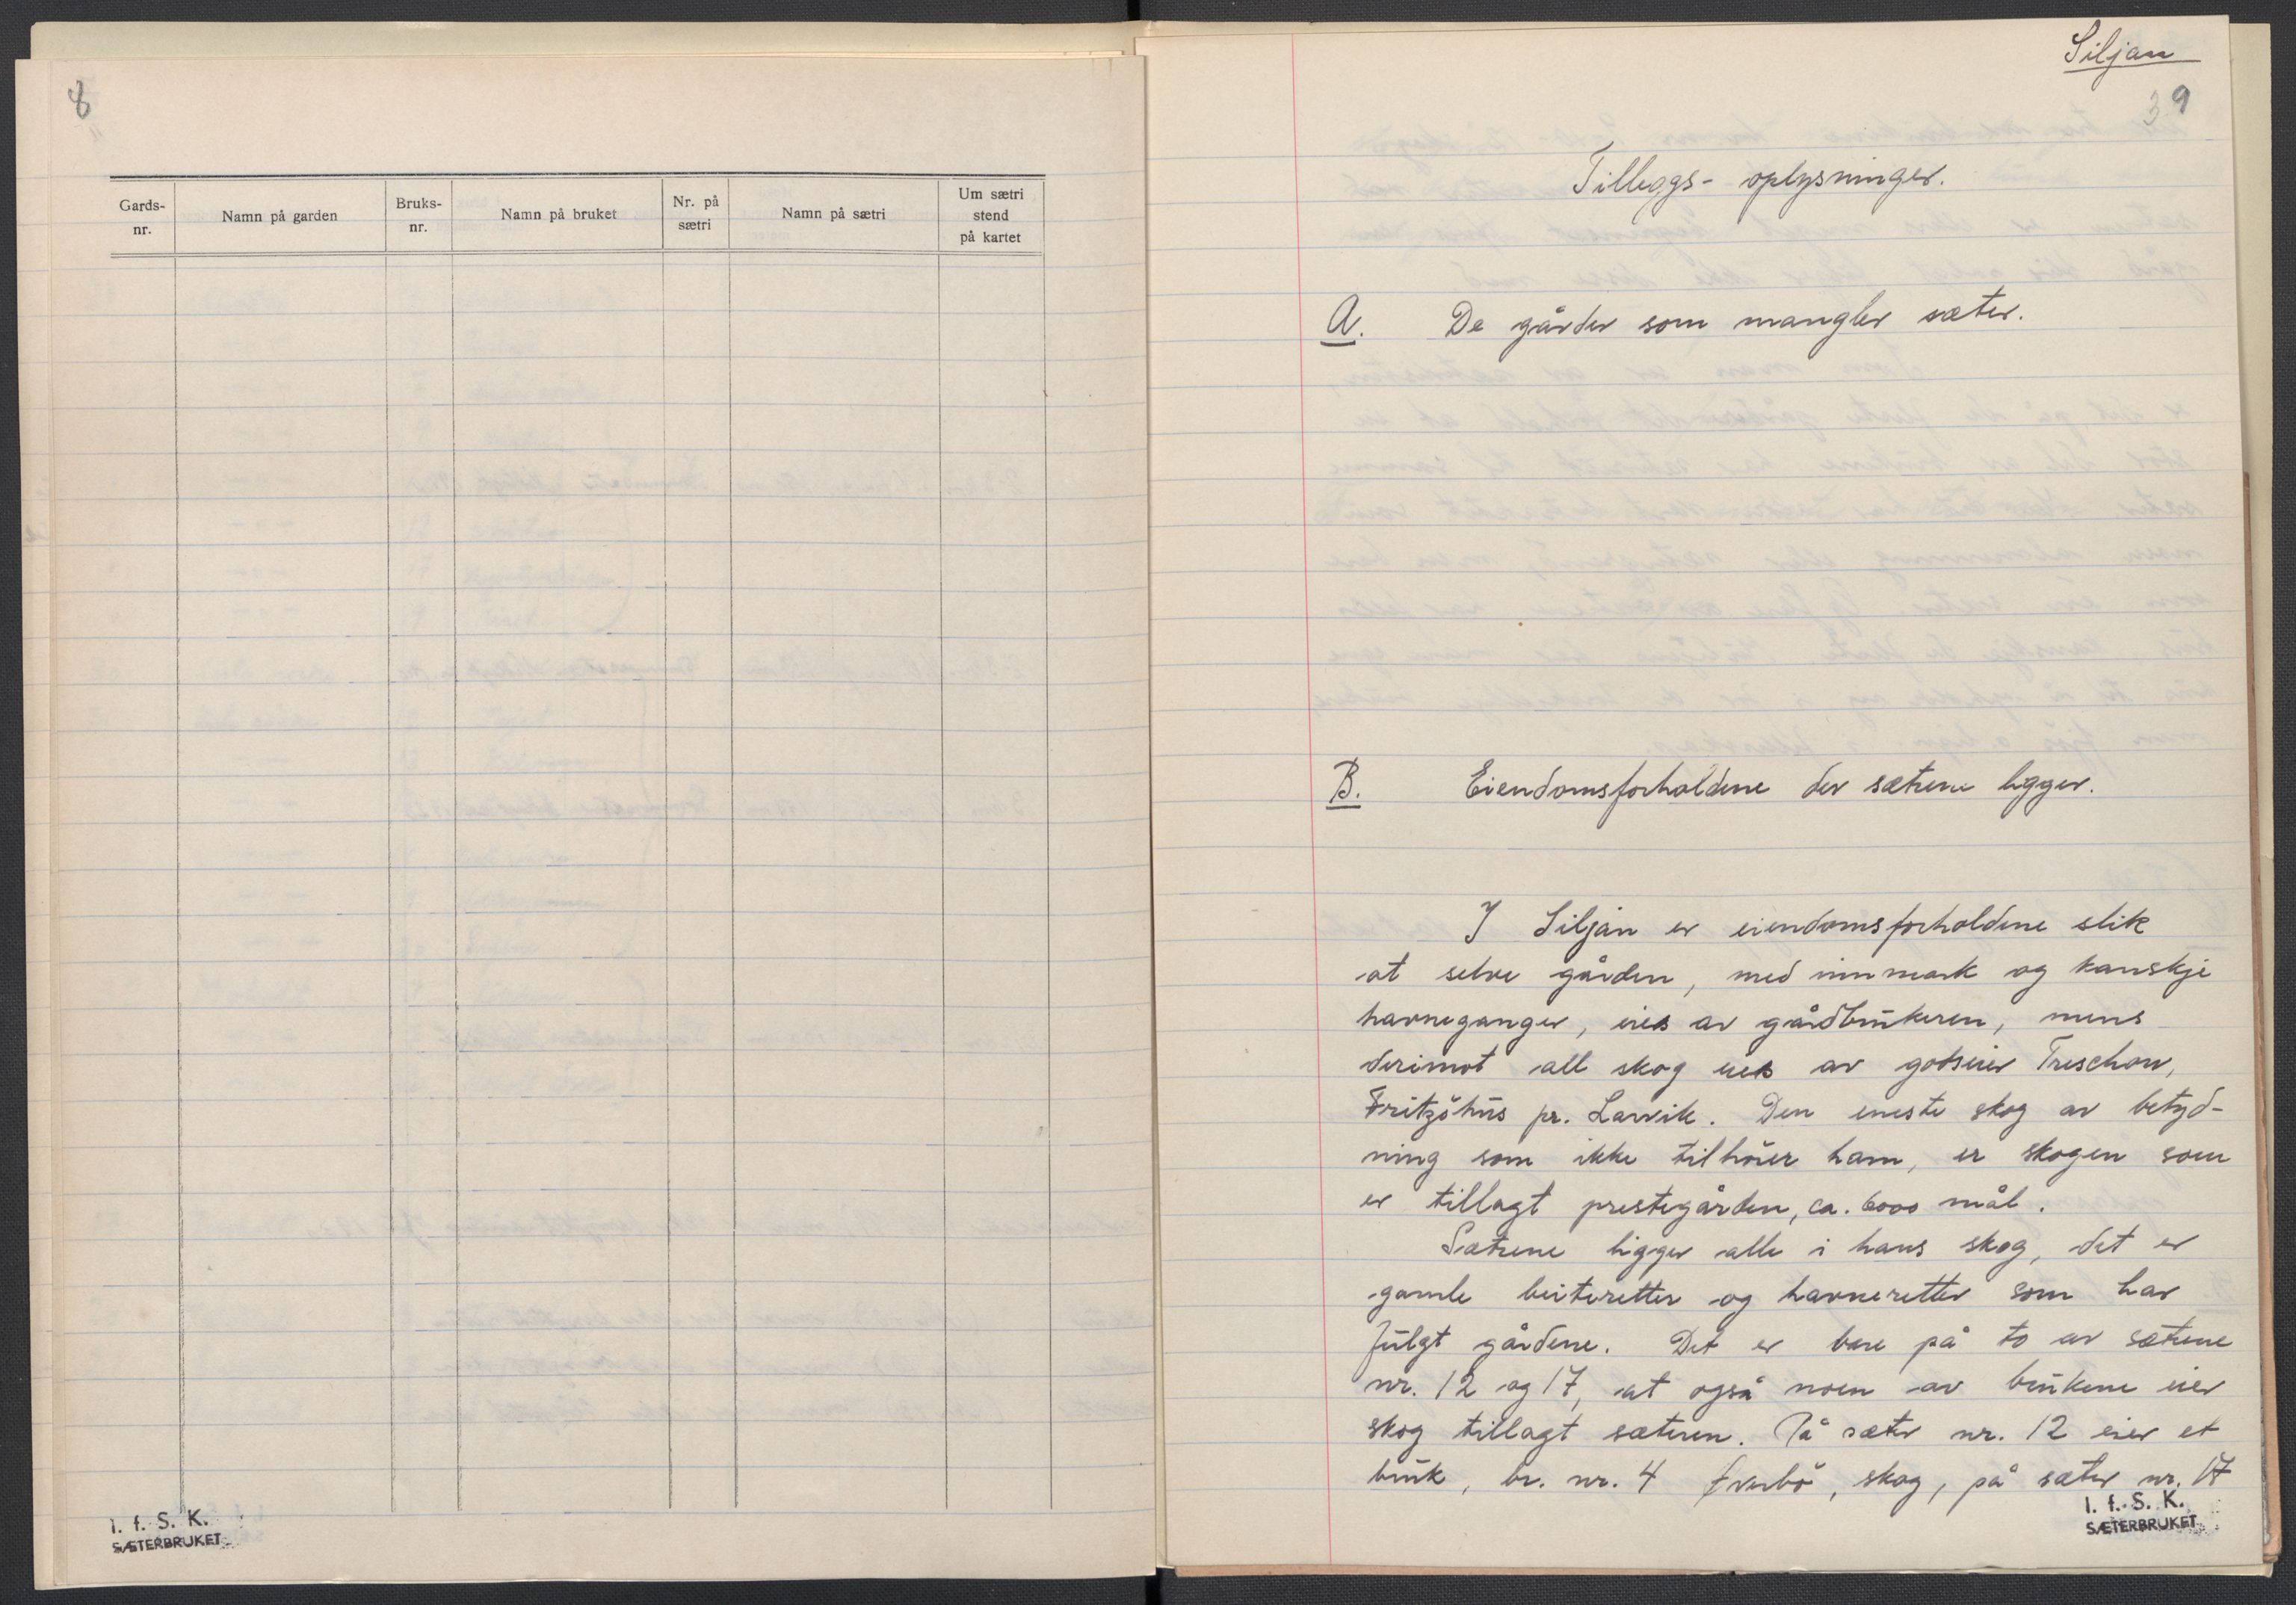 8
Gards-
nr.
Namn på garden
Bruks-
nr.
Namn på bruket
Nr. på
sætri
Namn på sætri
Um sætri
stend
på kartet
I. f. S. K.
SÆTERBRUKET
Siljan
39
Tilleggs-oplysninger.
A. De gårder som mangler sæter.
B. Eiendomsforholdene der sætrene ligger.
I Siljan er eiendomsforholdene slik
at selve gården, med innmark og kanskje
havneganger, eies av gårdbrukeren, mens
derimot all skog eies av godseier Treschow,
Fritzöhus pr. Larvik. Den eneste skog av betyd-
ning som ikke tilhörer ham, er skogen som
er tillagt prestegården, ca. 6000 mål.
Sætrene ligger alle i hans skog, det er
gamle beiteretter og havneretter som har
fulgt gårdene. Det er bare på to av sætrene
nr. 12 og 17, at også noen av brukene eier
skog tillagt sæteren. På sæter nr. 12 eier et
bruk, br. nr. 4 skog, på sæter nr. 17
I. f. S. K.
SÆTERBRUKET